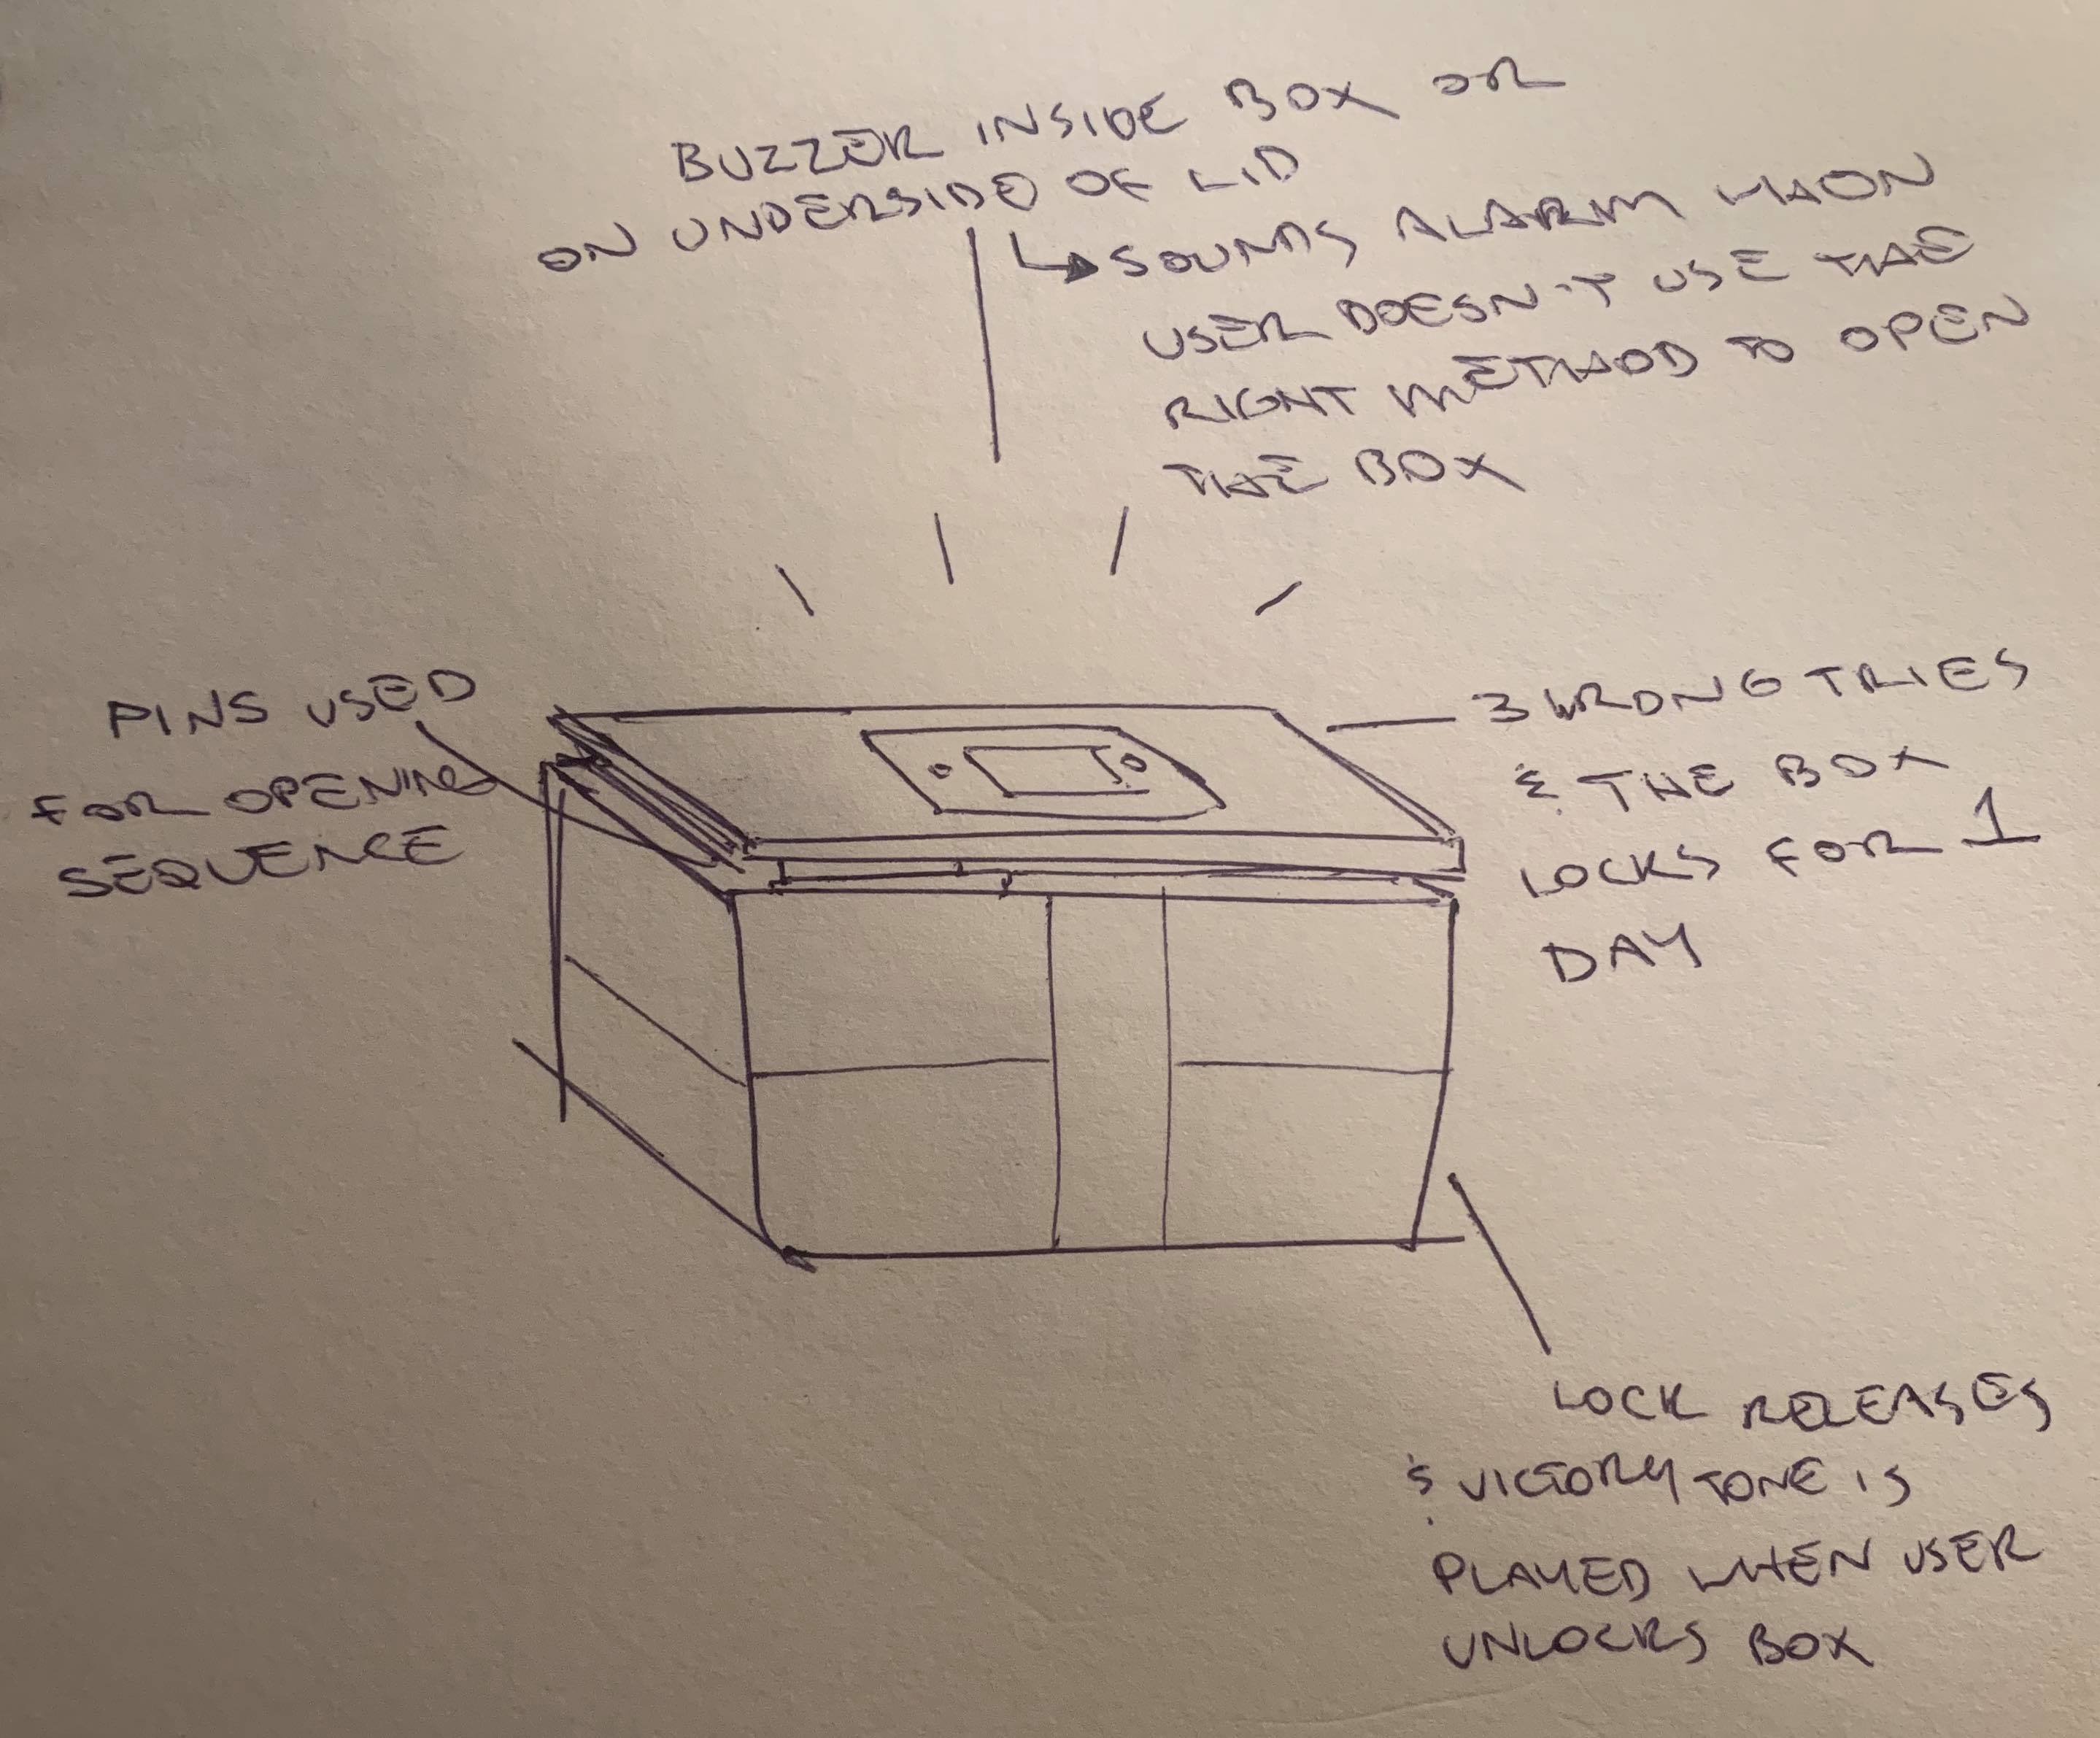 BUZZER INSIDE BOX OR
ON UNDERSIDE OF LID
↳ SOUNDS ALARM WHEN
USER DOESN'T USE THE
RIGHT METHOD TO OPEN
THE BOX
PINS USED
FOR OPENING
SEQUENCE
3 WRONG TRIES
& THE BOX
LOCKS FOR 1
DAY
LOCK RELEASES
& VICTORY TONE IS
PLAYED WHEN USER
UNLOCKS BOX